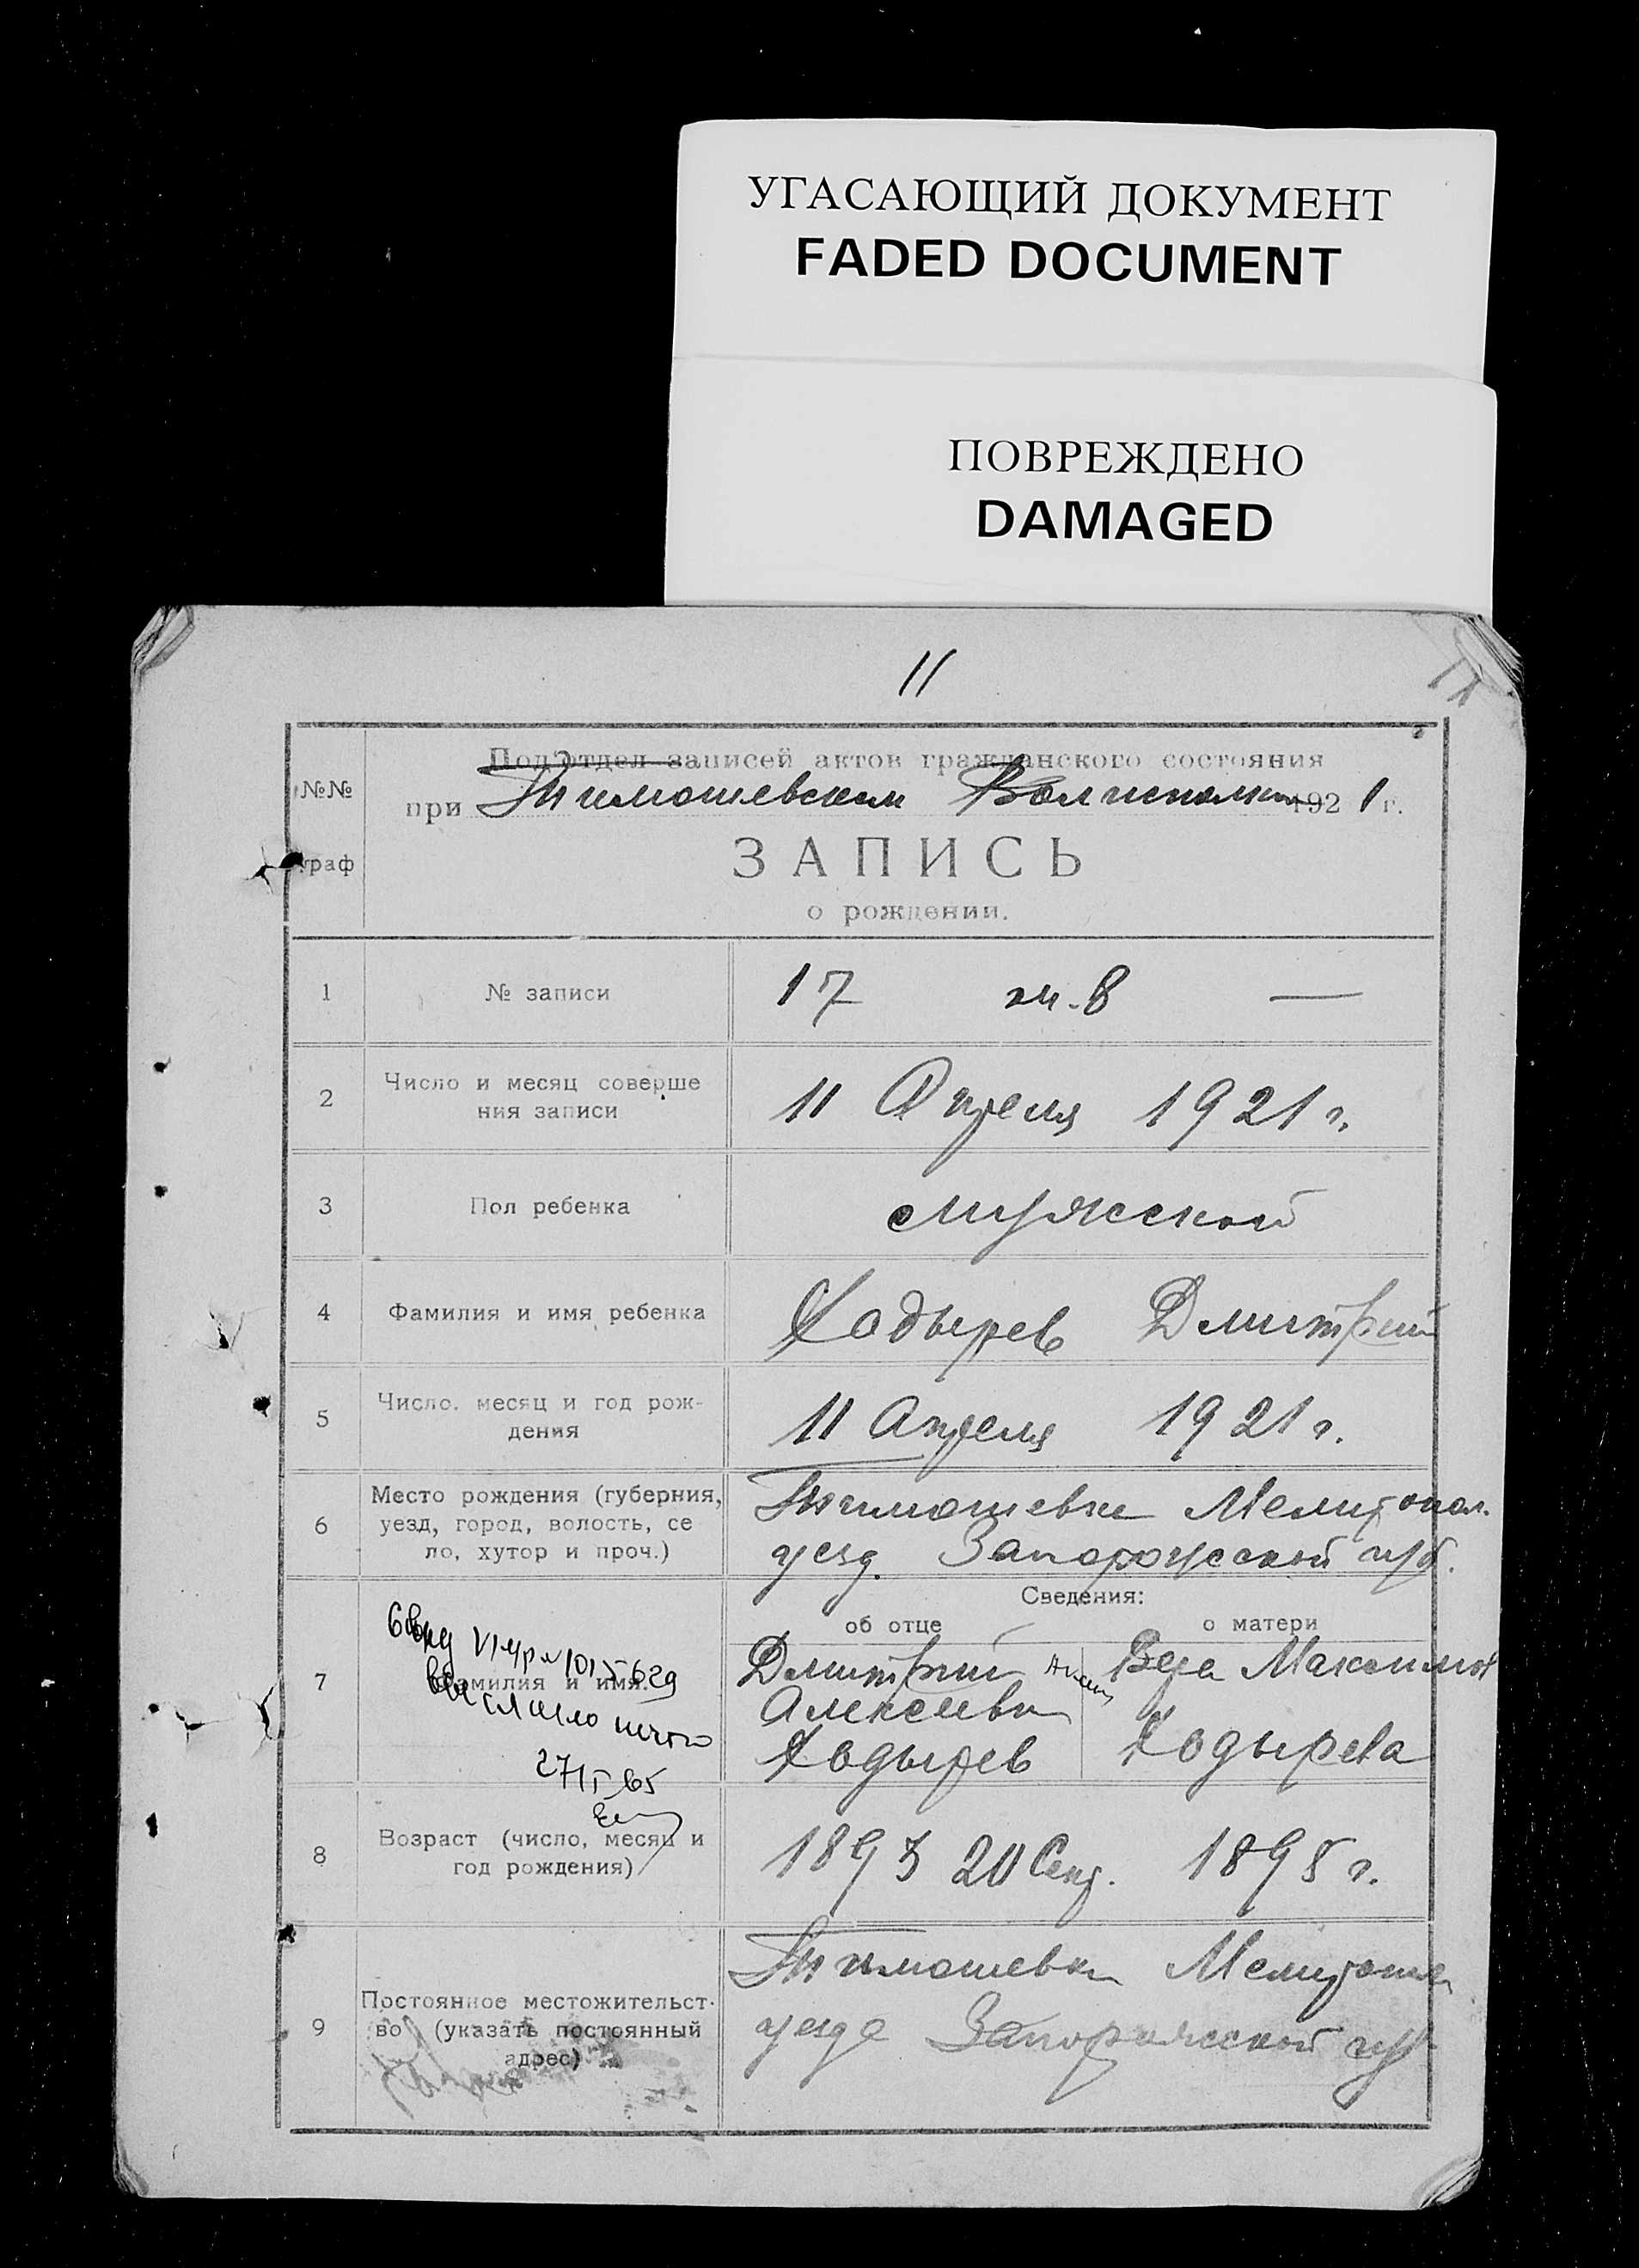 УГАСАЮЩИЙ ДОКУМЕНТ
FADED DOCUMENT
ПОВРЕЖДЕНО
DAMAGED
11
№№
граф
Под'отдел записей актов гражданского состояния
при Тимошевском Волисполком 1921 г.
ЗАПИСЬ
о рождении.
1 № записи 17 —
2 Число и месяц соверше
ния записи 11 Апреля 1921 г.
3 Пол ребенка мужской
4 Фамилия и имя ребенка Кодырев Дмитрий
5 Число, месяц и год рож-
дения 11 Апреля 1921 г.
6 Место рождения (губерния,
уезд, город, волость, се
ло, хутор и проч.)
Тимошевка Мелитопол.
уезд. Запорожской губ.
Сведения:
об отце о матери
7 Фамилия и имя.
Дмитрий
Алексеевич
Кодырев
Вера Максимов
Кодырева
8 Возраст (число, месяц и
год рождения) 1893 20 Сент. 1895 г.
9 Постоянное местожительст-
во (указать постоянный
адрес)
Тимошевка Мелитопол
уезда Запорожской губ